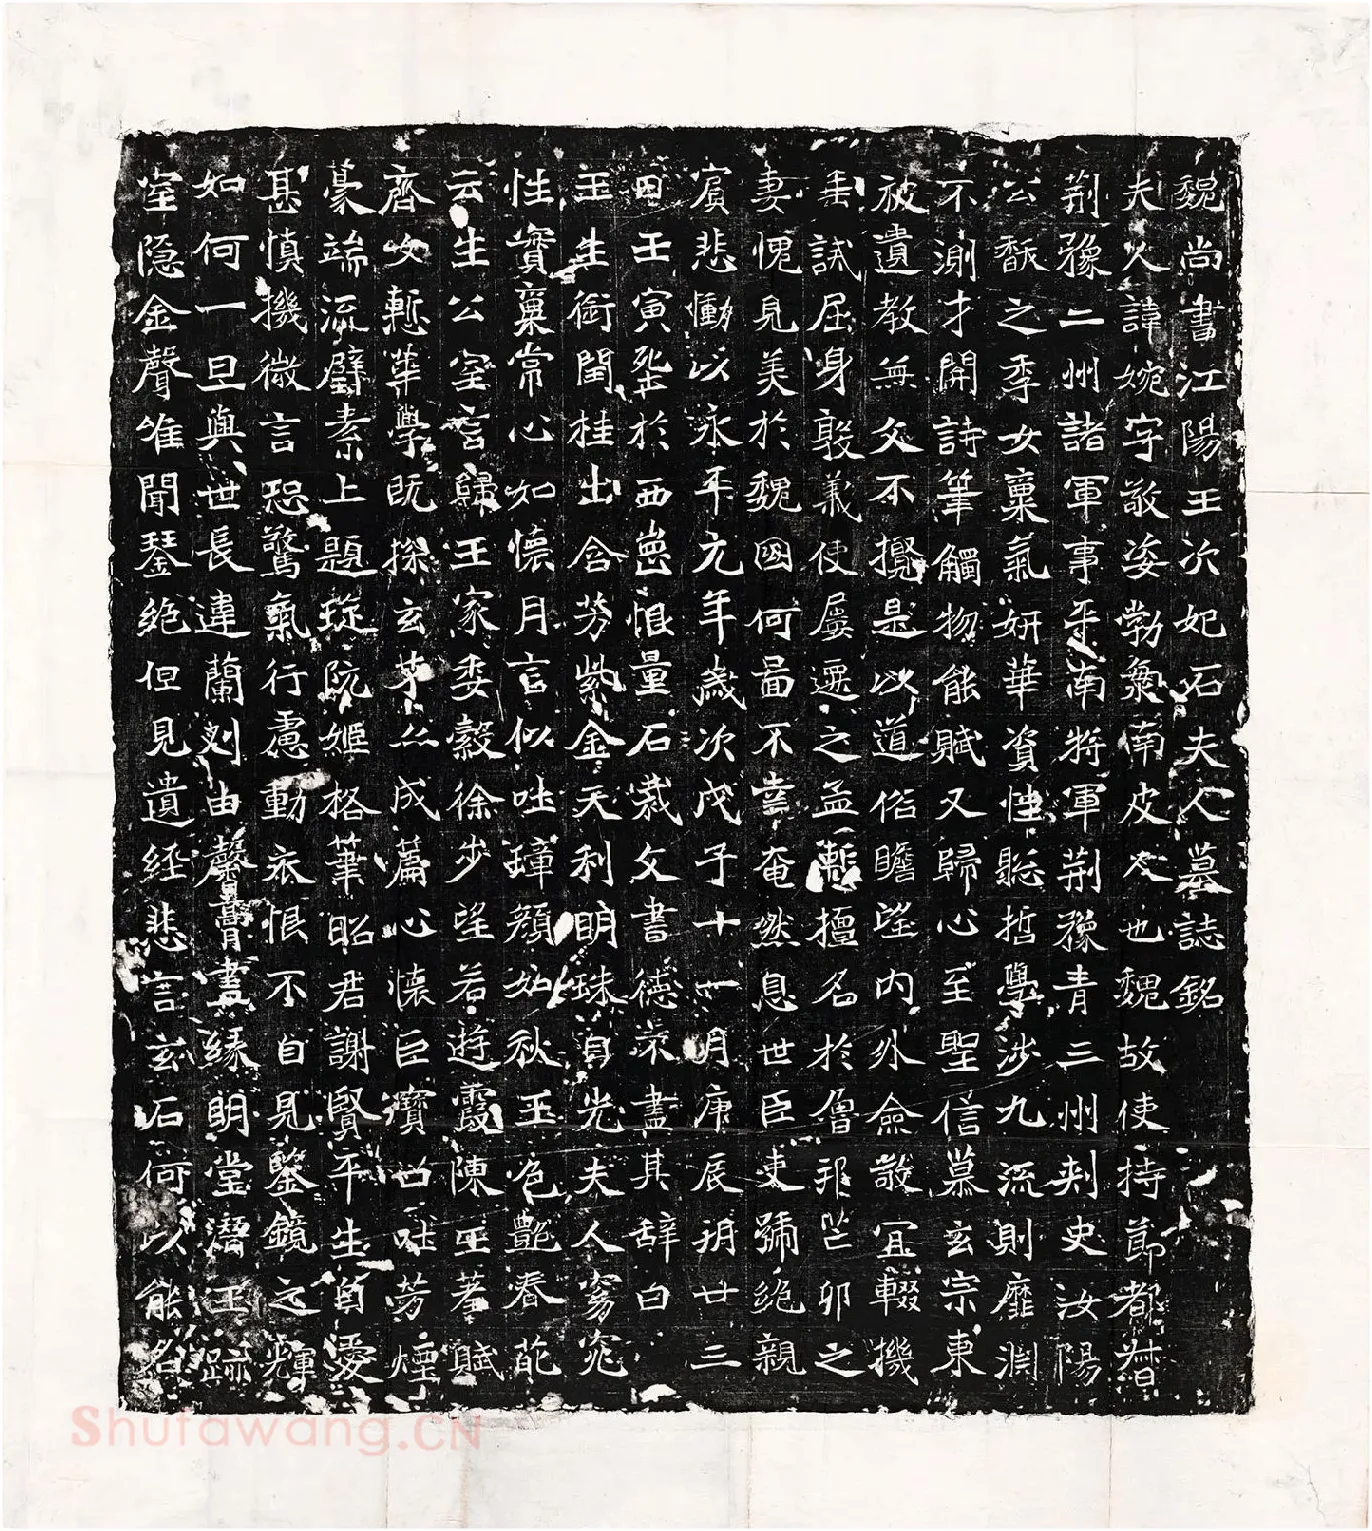 魏尚書江陽王次妃石夫人墓誌銘
夫人諱婉字敬姿勃海南皮人也魏故使持節都督
荊豫二州諸軍事平南將軍荊豫青三州刺史汝陽
公馥之季女稟氣妍華資性聰哲學涉九流則靡淵
不測才關詩筆觸物能賦又歸心至聖信慕玄宗東
被遺教無文不攬是以道俗瞻望內外僉敬宜輟機
垂誡屈身敦義使屢遷之孟慙擅名於魯邦芒卯之
妻愧見美於魏國何啚不幸奄然息世臣吏號絕親
賓悲慟以永平元年歲次戊子十一月庚辰朔廿三
日壬寅塟於西崗恨量石裁文書德未盡其辞曰
玉生銜閏桂出含芳紫金天利明珠自光夫人窈窕
性實稟常心如懷月言似吐璋顏如秋玉色艷春葩
云生公室言歸王家委縠徐步望若遊霞陳王羞賦
齊女慙華學既探玄才亦成篇心懷巨寶口吐芳煙
豪端流璧素上題琁阮姬格筆昭君謝賢平生自愛
甚慎機微言恐驚氣行慮動衣恨不自見鑒鏡之輝
如何一旦與世長違蘭剡由馨膏盡緣明堂潛玉跡
室隱金聲唯聞琴絕但見遺經悲言玄石何以能名
Shufawang.CN